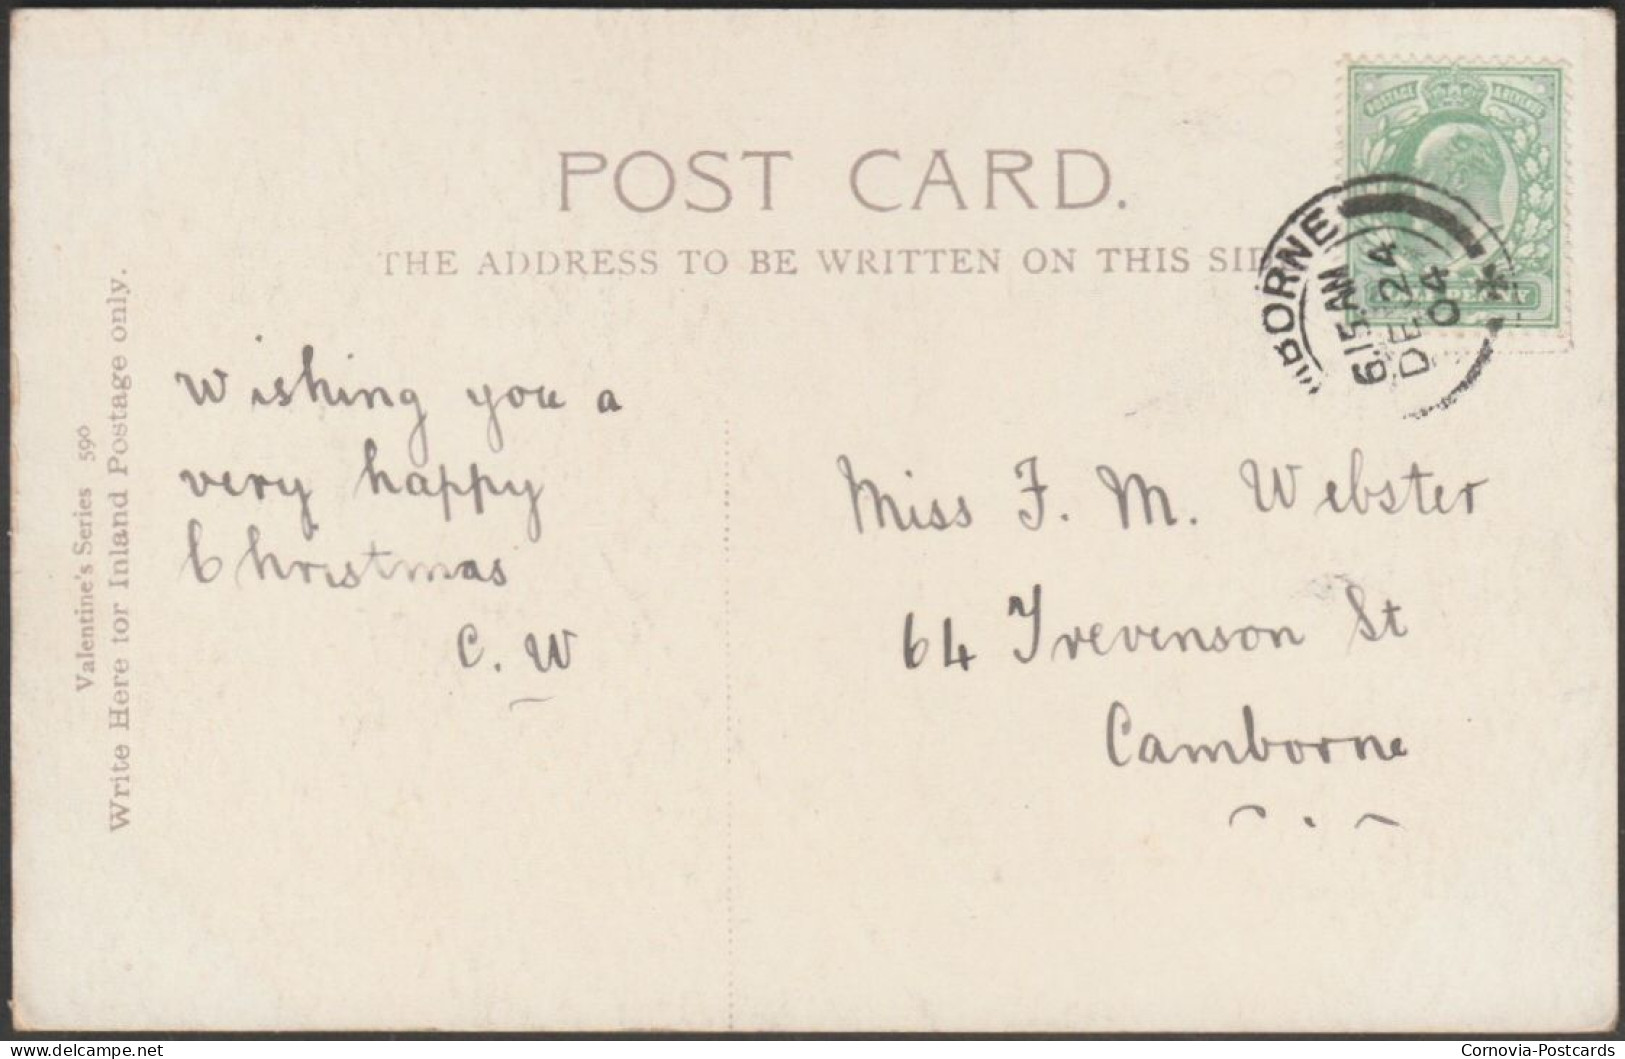 POST CARD.
THE ADDRESS TO BE WRITTEN ON THIS
POSTAGE
HALFPENNY
BORNE
6.15 AM
DE 24
04
Valentine's Series 590
Write Here for Inland Postage only.
Wishing you a
very happy
Christmas
C. W
Miss F. M. Webster
64 Trevenson St
Camborne
delcampe.net
Cornovia-Postcards